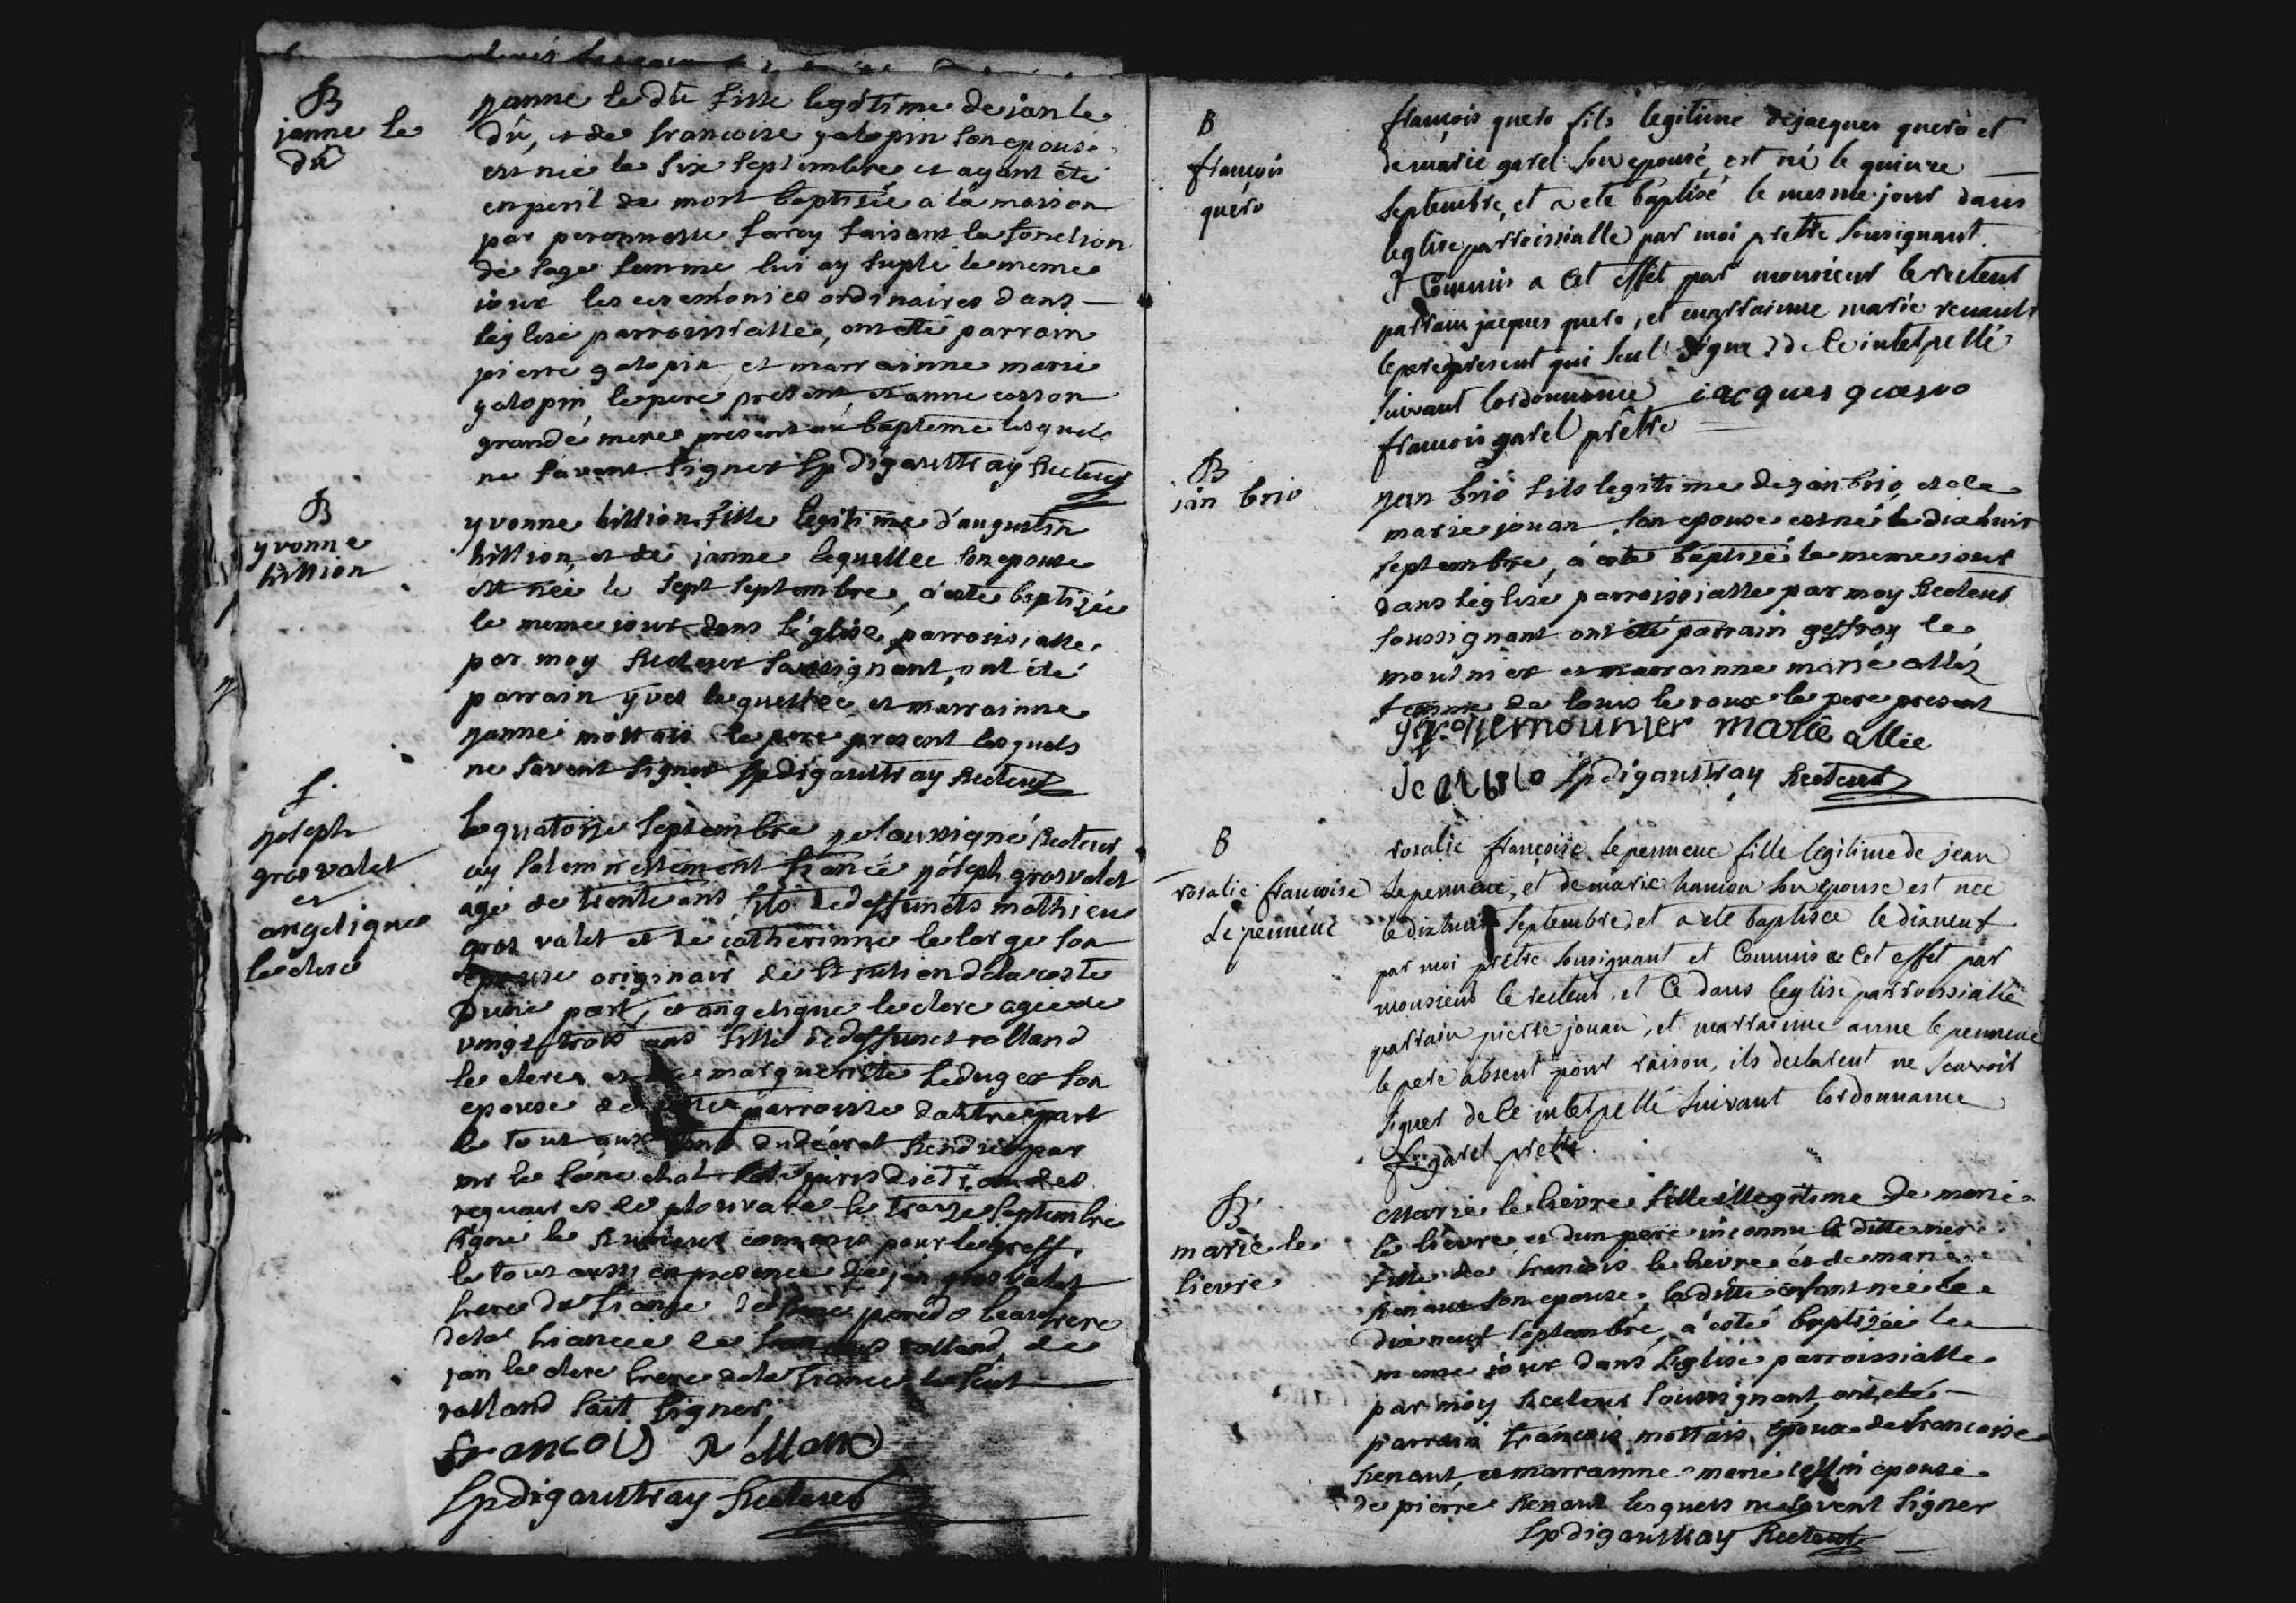 B
janne le
du
janne le du fille legitime de jan le
du, et de francoise galopin son epouse
est née le six septembre et ayant été
en peril de mort baptisée a la maison
par peronnelle farcy faisant la fonction
de sage femme lui ay suplé le meme
jour les ceremonies ordinaires dans
l'eglise parroissialle, ont été parrain
pierre galopin, et marrainne marie
galopin, le pere present, et anne cosson
grande mere presents au bapteme lesquels
ne savent signer Lp digaultray Recteur
B
yvonne
hillion
yvonne hillion fille legitime d'augustin
hillion, et de janne lequellec son epouse
est née le sept septembre, a esté baptizée
le meme jour dans l'église parroissialle
par moy Recteur soussignant, ont été
parrain yves lequellec et marrainne
janne mottais le pere present lesquels
ne savent signer Lp digaultray Recteur
f.
joseph
grosvalet
et
angelique
le clerc
Le quatorze septembre je soussigné Recteur
ay solemnellement fiancé joseph grosvalet
agé de trente ans fils de deffuncts mathieu
gros valet et de catherinne le large son
epouse originair de st julien de la coste
d'une part, et angelique le clerc agée de
vingt trois ans fille de deffunct rolland
le clerc et de margueritte le duger son
epouse de cette parroisse d'autre part
le tout aux du décret Rendu par
mr le sénechal de la jurisdiction des
reguaires de plouvara le treze septembre
signé le commis pour le greff.
le tout aussi en presence de jan grosvalet
frere du fiancé de peredo beaufrere
de la fiancée de rolland, de
jan le clerc frere de la fiancée le seul
rolland sait signer,
francois Rolland
Lp digaultray Recteur
B
françois
quero
françois quero fils legitime de jacques quero et
de marie garel son epouse, est né le quinze
septembre, et a eté baptisé le mesme jour dans
leglise parroissialle par moi prêtre sousignant
et Commis a Cet effet par monsieur le recteur
parrain jacques quero, et marrainne marie renault
le pere present qui seul signe de Ce interpellé
suivant lordonnance jacques quero
francois garel prêtre
B
jan brio
jan brio fils legitime de jan brio, et de
marie jouan son epouse est né le dix huit
septembre, a esté baptizé le meme jour
dans l'eglise parroissialle par moy Recteur
soussignant ont été parrain geffroy le
mounier et marrainne marie allée
femme de louis le roux le pere present
geffroy lemounier marie allie
jean brio Lp digaultray Recteur
B
rosalie francoise
le penneuc
rosalie françoise le penneuc fille legitime de jean
le penneuc, et de marie hamon son epouse est née
le dix huit septembre et a eté baptisée le dixneuf
par moi prêtre sousignant et Commis a Cet effet par
monsieur le recteur, et Ce dans leglise parroissialle
parrain pierre jouan, et marrainne anne le penneuc
le pere absent pour raison, ils declarent ne scavoir
signer de Ce interpellé suivant lordonnance
f. garel prêtre
B
marie le
lievre
Marie le lievre fille illegitime de marie
le lievre et d'un pere inconnu la ditte mere
fille de francois le lievre et de marie
Renaut son epouse, la ditte enfant née le
dix neuf septembre, a esté baptizée le
meme jour dans l'eglise parroissialle
par moy Recteur soussignant, ont été
parrain francois mottais epoux de francoise
Renaut, et marrainne marie epouse
de pierre Renaut lesquels ne savent signer
Lp digaultray Recteur